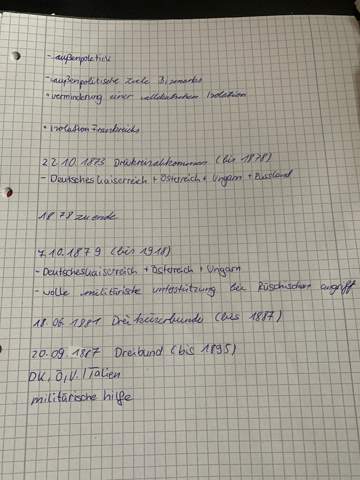 - außenpolitik
- außenpolitische ziele Bismarks
• verminderung einer Isolation
• isolation Frankreichs
22.10.1873 Dreikaiserabkommen (bis 1878)
- Deutsches Kaiserreich + Österreich + Ungarn + Russland
1878 zu ende
7.10.1879 (bis 1918)
- Deutsches Kaiserreich + Österreich + Ungarn
- volle militärische unterstützung bei Rüschischen angriff
18.06.1981 Dreikaiserbunde (bis 1887)
20.09.1887 Dreibund (bis 1895)
DK, Ö, V. Italien
militärische hilfe